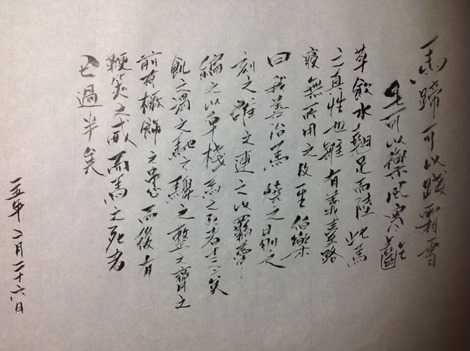 馬蹄可以踐霜雪
毛可以禦風寒齕
草飲水翹足而陸此馬
之真性也雖有義臺路
寢無所用之及至伯樂
曰我善治馬燒之剔之
刻之雒之連之以羈馽
編之以皁棧馬之死者十二三矣
飢之渴之馳之驟之整之齊之
前有橛飾之患而後有
鞭筴之威而馬之死者
已過半矣
一五年二月二十六日